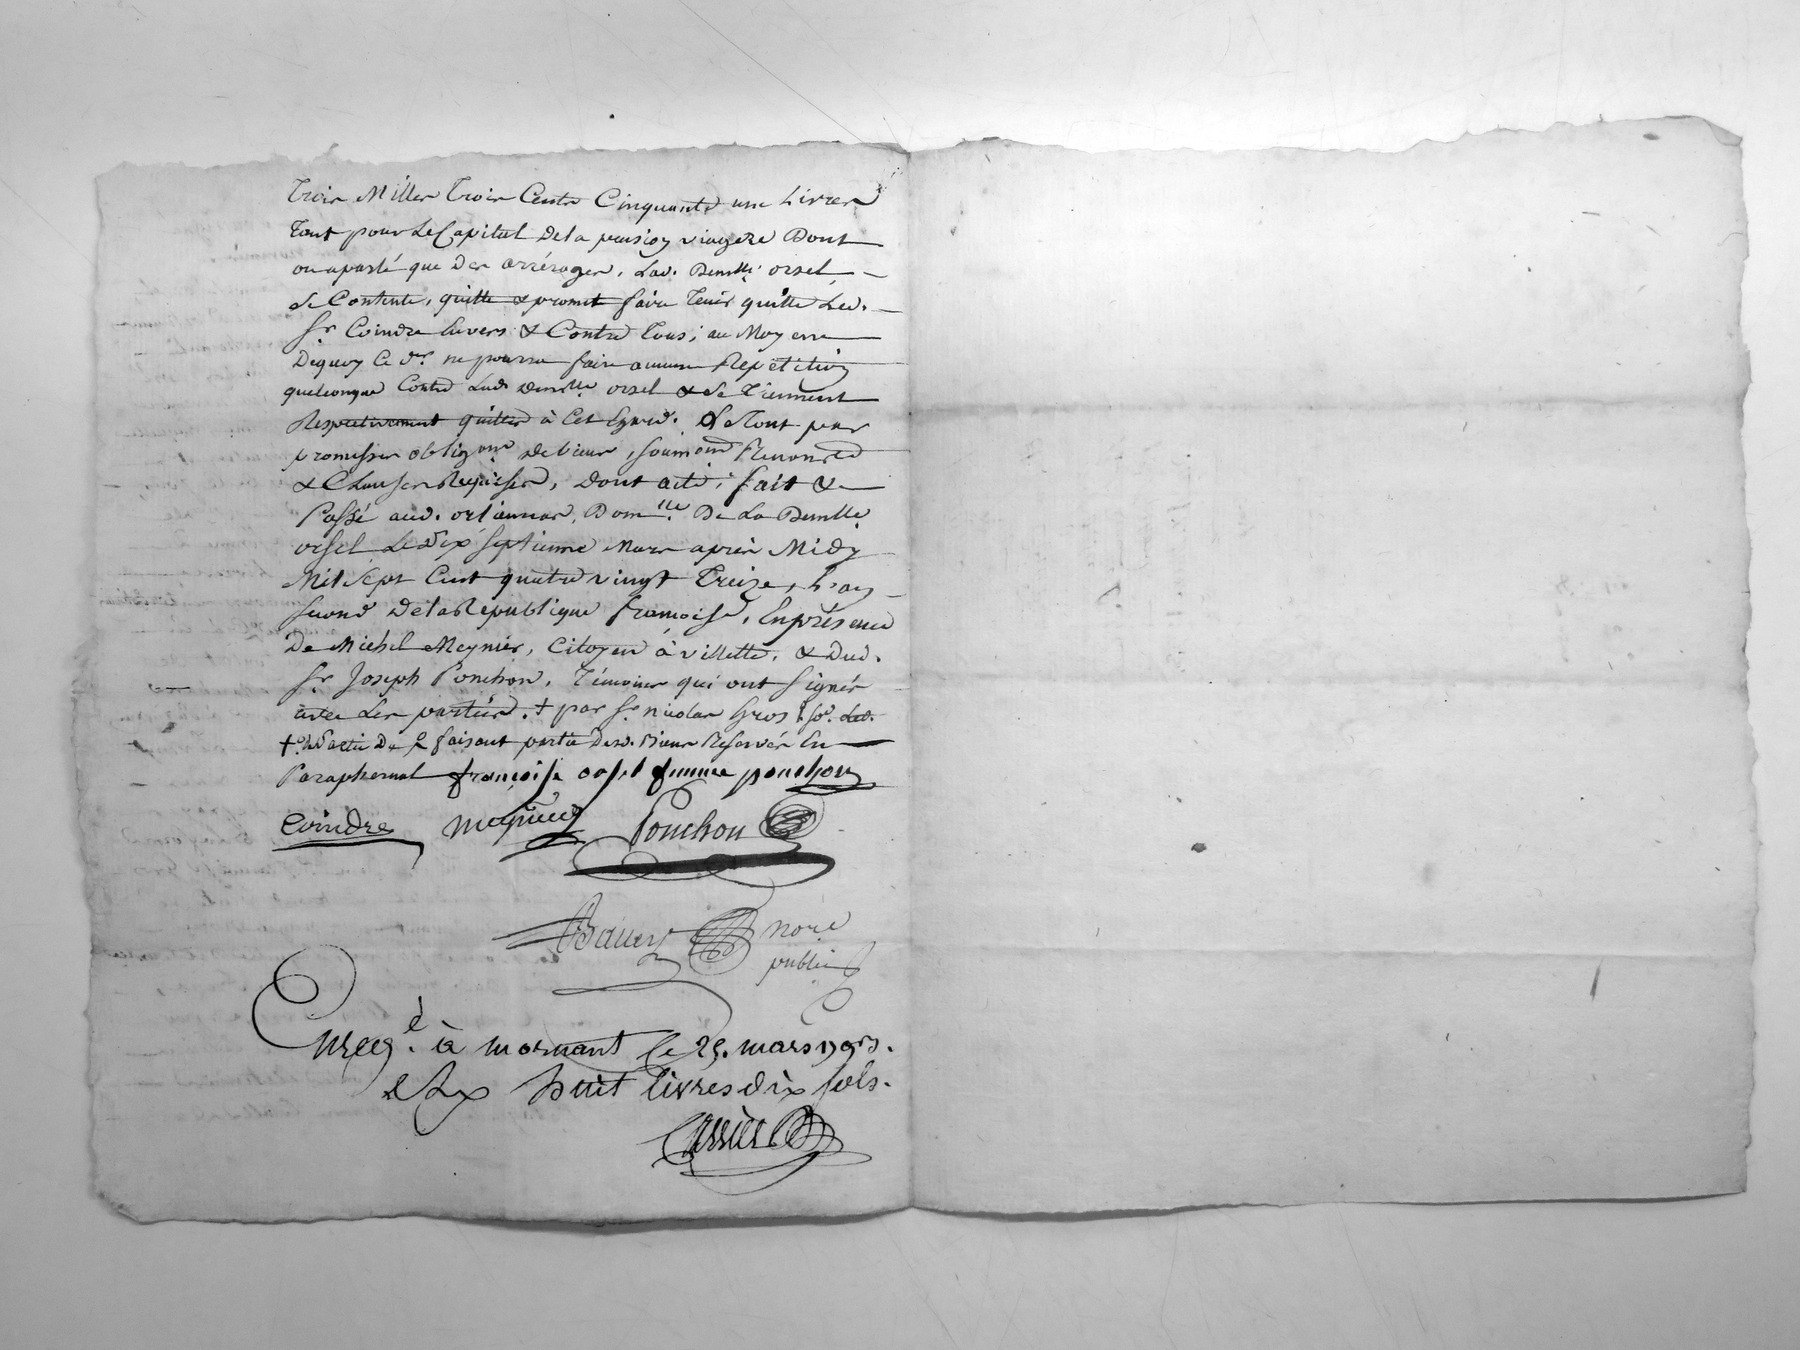 Trois Milles Trois Cents Cinquante une Livres
Tant pour Le Capital dela pension viagere Dont
on a parlé que Des arrérages. Lad. Demlle. orsel
Se Contente, quitte & promet faire Tenir quitte Led.
Sr. Coindre Envers & Contre Tous; au Moyen
Dequoy Ce Der. ne pourra faire aucune Repetition
quelconque Contre Lad. Demlle. orsel & Se Tiennent
Respectivement quittes à Cet Egard. Le Tout par
promesses obligons. De bieux, soumions Renonces
& Clauses Requises, Dont acte, fait &
Passé aud. orliennas, Domlle. De La Demlle.
orsel Le Dix septieme Mars après Midy
Mil Sept Cent quatre vingt Treize, L'an
second De la Republique francoise, En présence
De Michel Meynier, Citoyen à villette, & Dud.
Sr. Joseph Ponchon, Témoins qui ont signés
avec Les parties. + par Sr. nicolas Gros
faisant partie Desd. Biens Reservés En
Paraphernal françoise orsel femme ponchon
Coindre meynier Ponchon
nore
public
Enregé. à mornant le 25. mars 1793.
dix huit livres dix sols.